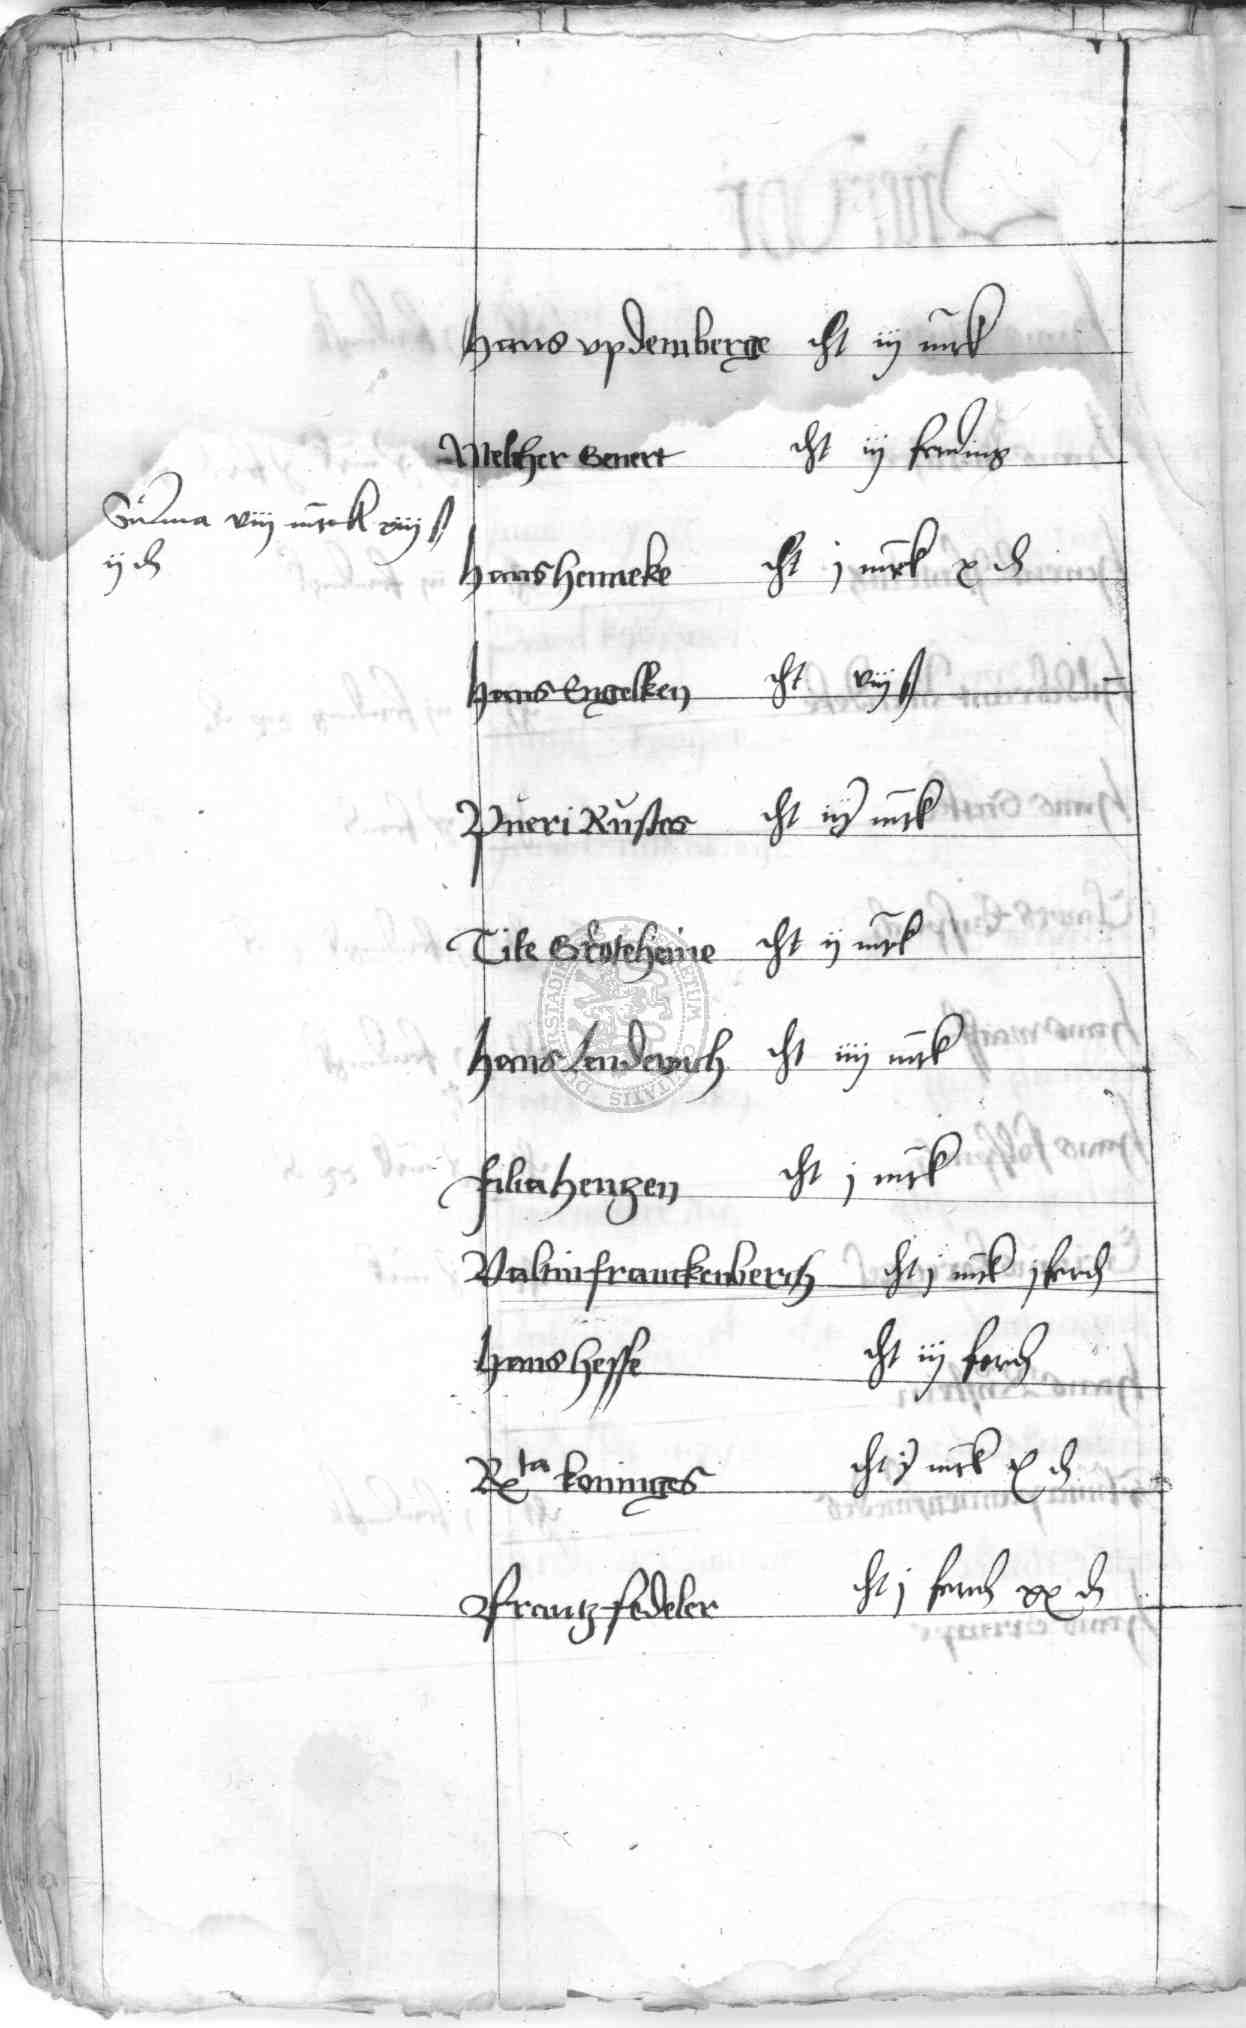 Hans updemberge dt iij mrk
Melcher Genert dt iij ferding
Summa viij mrck xiiij ß
ij d
Hans Henneke dt j mrk x d
Hans Engelken dt viij ß
Pueri Rustes dt iij mrk
Tile Groteheine dt ij mrk
Hans Lenderich dt iiij mrk
filia Hentzen dt j mrk
Valtin franckenberch dt j mrk j ferd
Hans Hesse dt iij ferd
Rta koninges dt mrk x d
frantz fedeler dt j ferd xx d